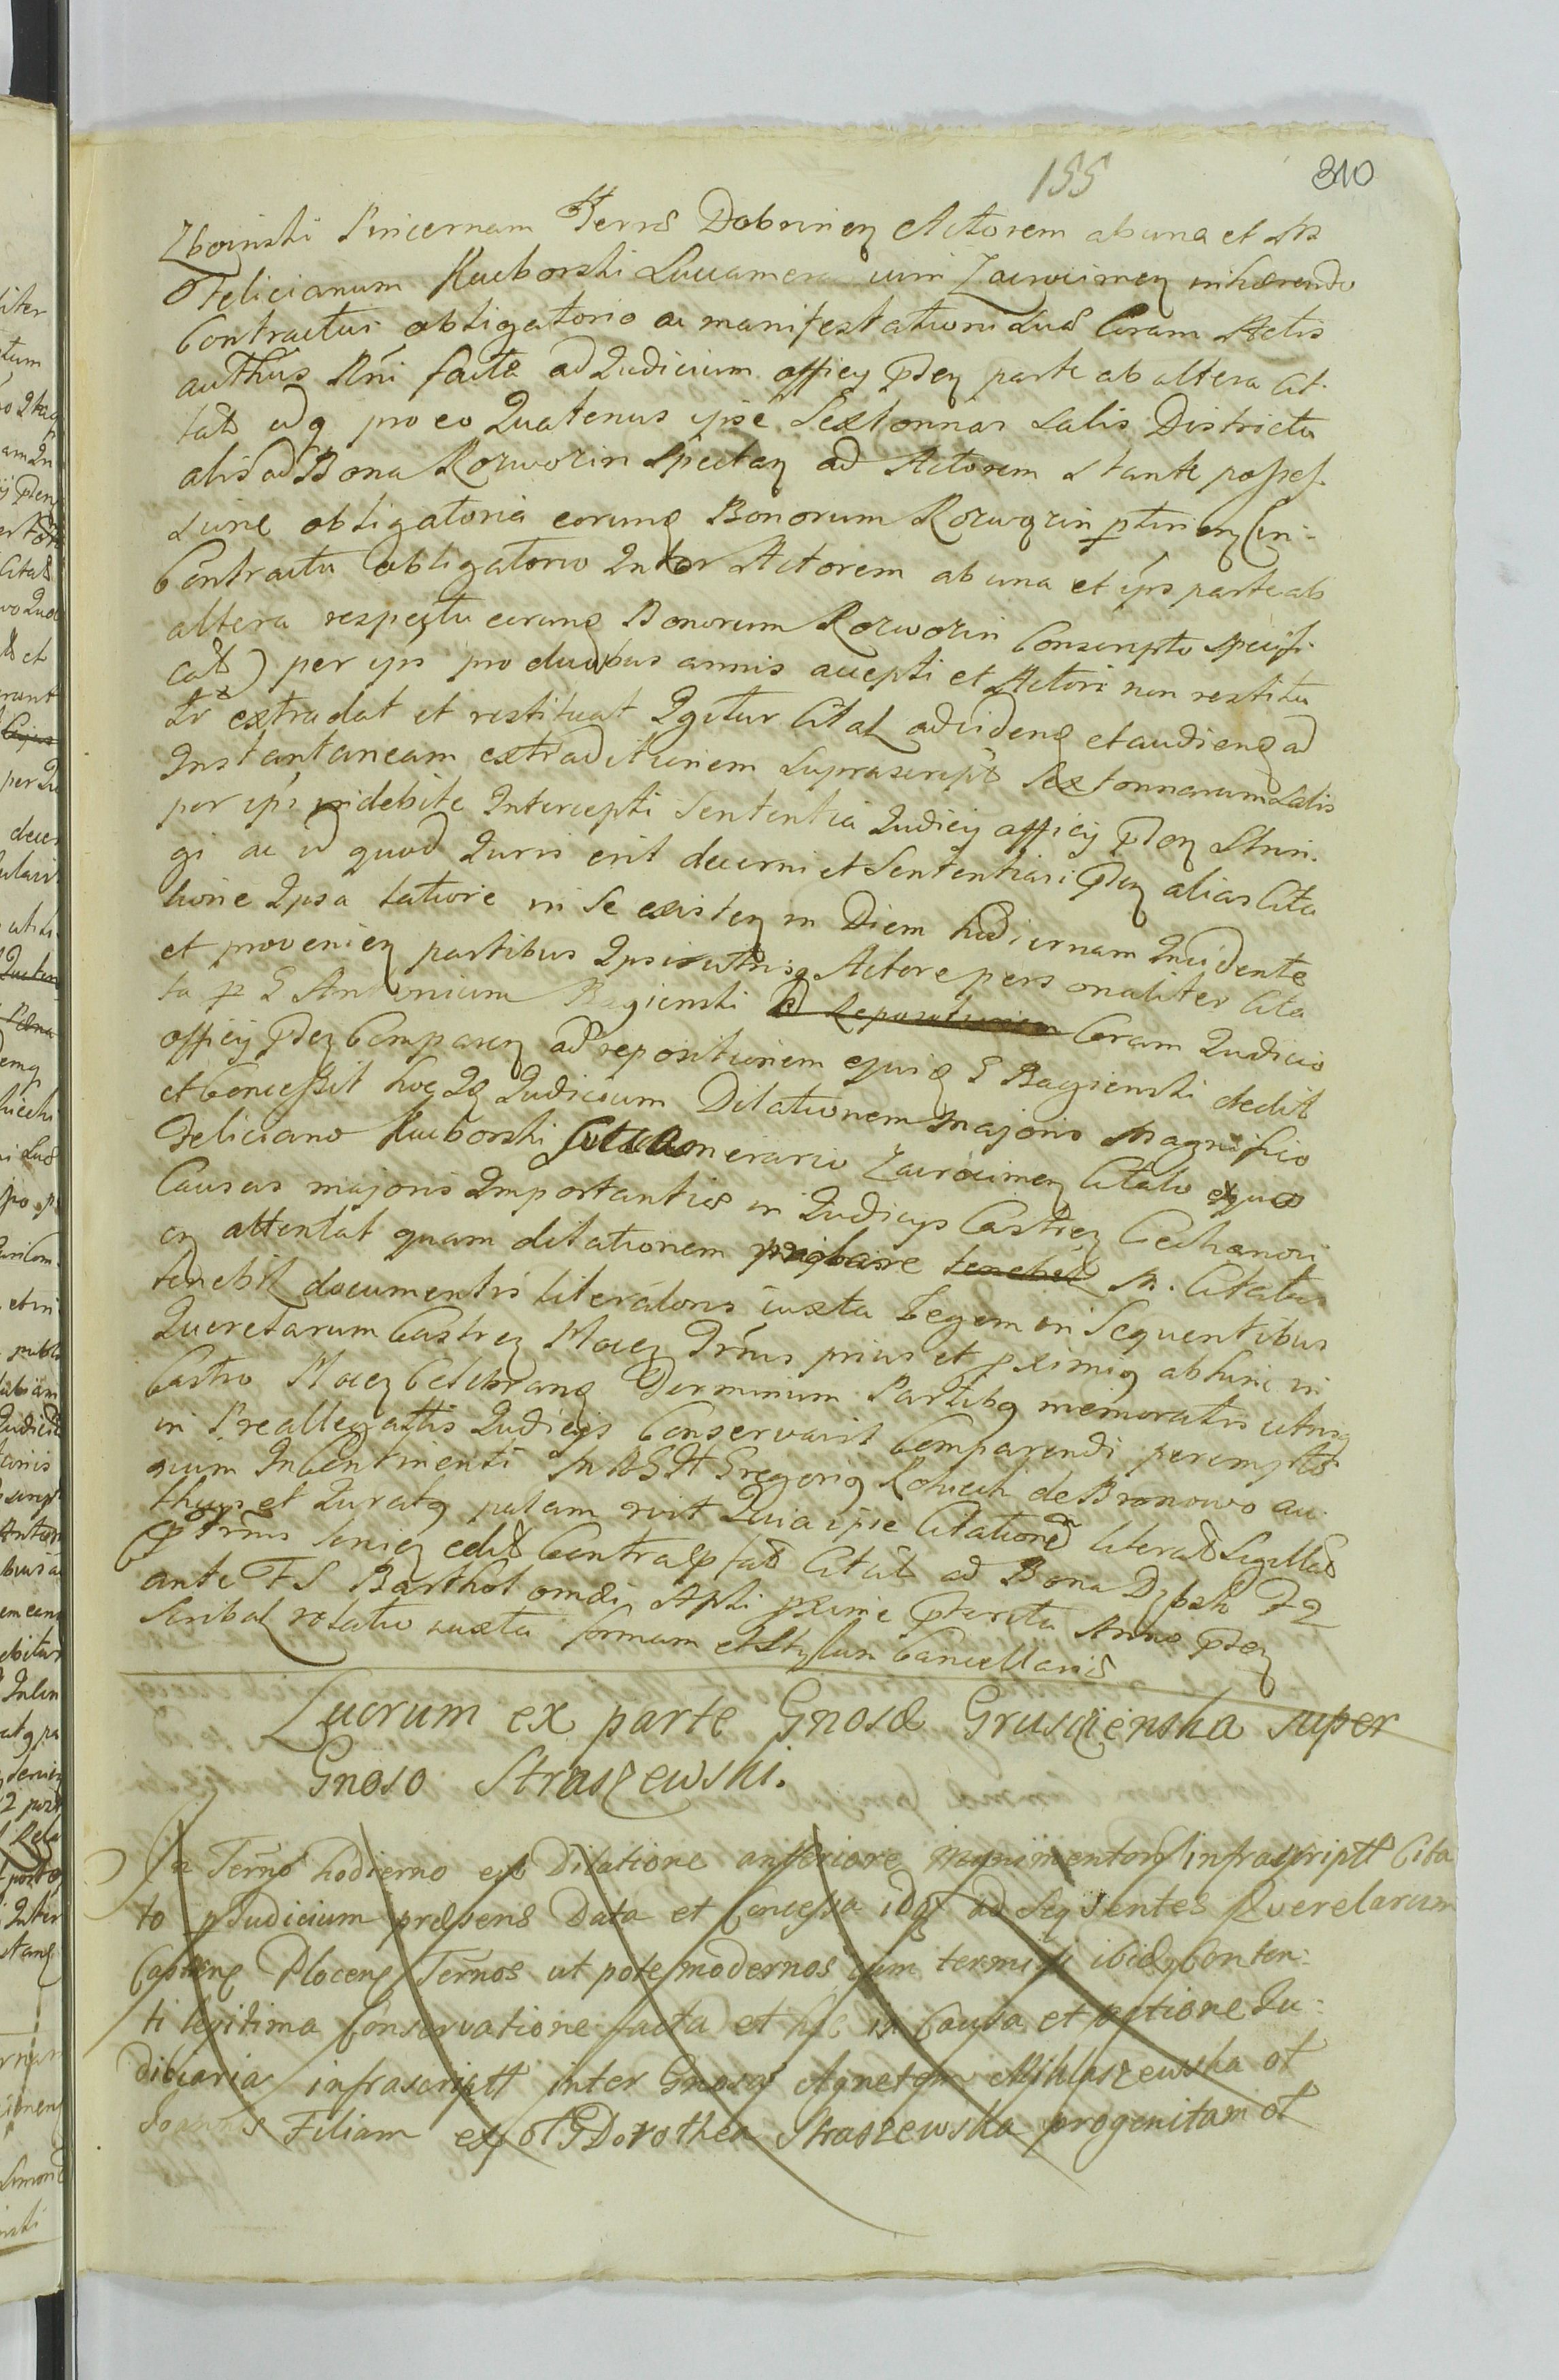 155
310
Zboinski Pincernam Terræ Dobrinen Actorem ab una et M
Felicianum Kuiborski Succamera rium Zacrocimen inhærendo
Contractui obligatorio ac manifestationi suæ Coram Actis
authus Pñi factæ ad Judicium officy pden parte ab altera Cit.
tatũ idq pro eo Quatenus ipse Sex tonnas Salis Districtu
alis ad Bona Rozwozin Spectan ad Actorem Stante posses.
sione obligatoria eorund Bonorum Rozwozin ptinen (in
Contractu obligatorio Inter Actorem ab una et ips parte ab
altera respectu eorund Bonorum Rozwozin Conscripto specifi.
cat) per ips pro duobus annis accepti et Actori non restitu
ti extradat et restituat Igitur Citat ad vidend et audiend ad
Instantaneam extraditionem suprascript Sex tonnarum Salis
per ips indebite Intercepti Sententia Judicy officy pden Strin.
gi ac id quod Juris erit decerni et Sententiari pden alias Cita
tione Ipsa latiore in Se existen in Diem hodiernam Incidente
et provenien partibus Ipsis utrisq Actore personaliter Cita
to p G Antonium Bagienski ad Repositionem Coram Judicio
officy pden Comparen ad repositionem ejusd G Bagienski dedit
et Concessit hoc Id Judicium Dilationem majoris Magnifico
Feliciano Kuiborski Succamerario Zacrocimen Citato ejus
Causas majoris Importantiæ in Judicys Castren Ciechanovi
en attentat quam dilationem probare tenebit M. Citatus
tenebit documentis literatoris iuxta Legem in Sequentibus
Querelarum Castren Plocen Trñis prius et pximiq abhinc in
Castro Plocen Celebrand Terminum Partibq memoratis utrisq
in Preallegatis Judicys Conservavit Comparendi peremptõ
quum Incontinenti M R G H Gregoriq Rokicki de Bronowo au
thus et Juratq palam rvit Quia ipse Citatione literat Sigillat
p Trñis
ante F S Barthol omæi Apli pxime pterita Anno pden
Scribat rotatio iuxta formam et Stylum Cancellariæ
Lucrum ex parte Gnosæ Grusczenska super
Gnoso Straszewski.
In Terño hodierno ex Dilatione anteriore munimentorũ infrascriptt Cita
to p Judicium præsens Data et Concessa idq ad Seq Sentes Querelarum
Castrens Plocens Terños ut pote modernos cum termini ibid Conten:
ti legitima Conservatione facta et hic in Causa et actione Ju:
diciaria infrascriptt inter Gnosas Agnetem Miklaszewska ol
Joannis Filiam ex ol G Dorothea Straszewska progenitam ol